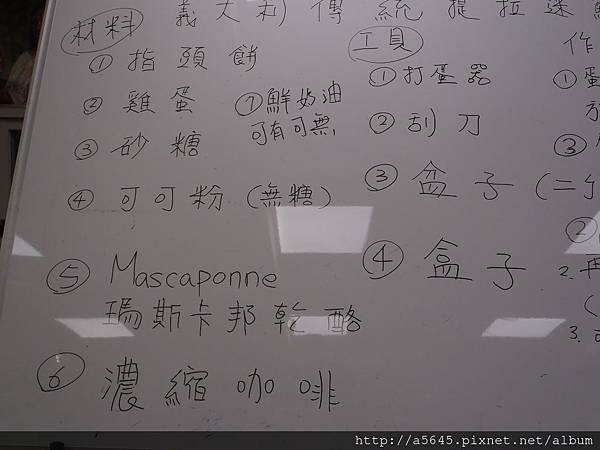 義大利傳統提拉
材料
①指頭餅
②雞蛋
③砂糖
④可可粉(無糖)
⑤Mascaponne
瑪斯卡邦乾酪
⑥濃縮咖啡
⑦鮮奶油
可有可無
工具
①打蛋器
②刮刀
③盆子(二
④盒子
作
①蛋
③
②
2.再
(
3.
http://a5645.pixnet.net/album